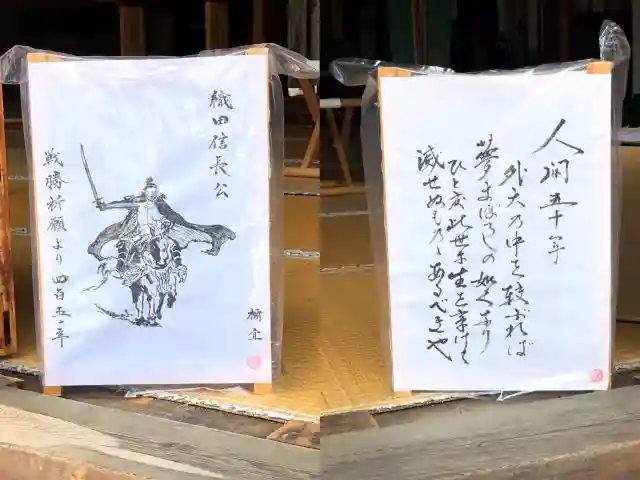 織田信長公
戦勝祈願より四百五十年
禰宜
人間五十年
外天の中を較ぶれば
夢まぼろしの如くなり
ひと度此世に生を享けて
滅せぬものゝあるべきや